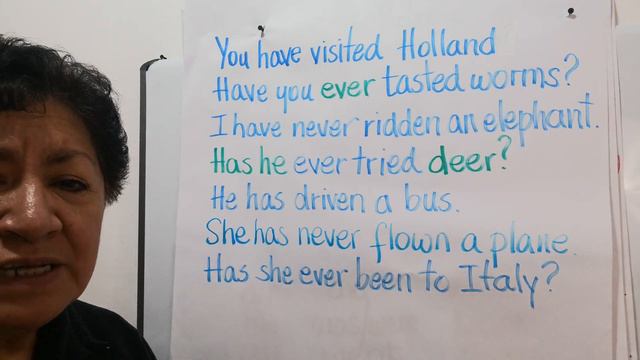 You have visited Holland
Have you ever tasted worms?
I have never ridden an elephant.
Has he ever tried deer?
He has driven a bus.
She has never flown a plane.
Has she ever been to Italy?